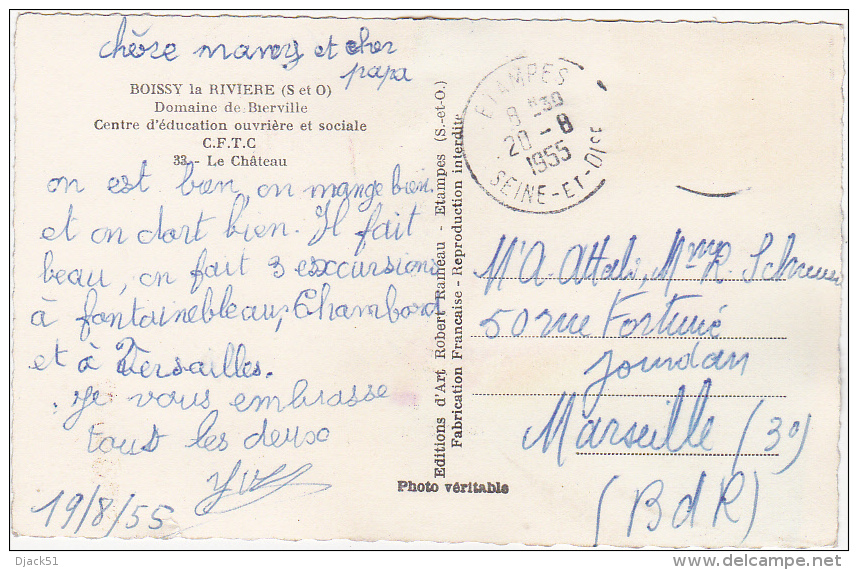 chère mamy et cher
papa
BOISSY la RIVIERE (S et O)
Domaine de Bierville
Centre d'éducation ouvrière et sociale
C.F.T.C
33.- Le Château
on est bien, on mange bien.
et on dort bien. Il fait
beau, on fait 3 excursions
à fontainebleau, Chambord
et à Versailles.
Je vous embrasse
tous les deux
Yves
19/8/55
Editions d'Art Robert Rameau - Etampes (S.-et-O.)
Fabrication Française - Reproduction interdite
Photo véritable
ETAMPES
8 H 30
20 - 8
1955
SEINE-ET-OISE
M'A. Attali, Mme R.
50 rue Fortuné
Jourdan
Marseille (3°)
(B d R)
Djack51
delcampe.net